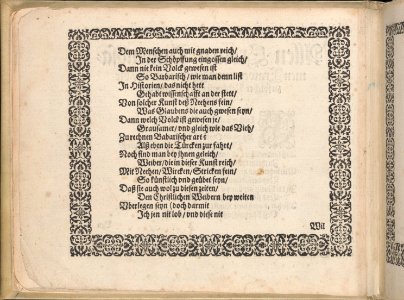 Dem Menschen auch mit gnaden reich/
In der Schöpffung eingossen gleich/
Dann nie kein Volck gewesen ist
So Barbarisch / wie man denn list
In Historien / das nicht hett
Gehabt wissenschafft an der stett/
Von solcher Kunst deß Nehens fein/
Was Glaubens die auch gwesen seyn/
Dann welch Volck ist gewesen je/
Grausamer / vnd gleich wie das Vieh/
Zu rechnen Barbarischer art
Alß eben die Türcken zur fahrt/
Noch find man bey jhnen gleich/
Weiber / die in dieser Kunst reich/
Mit Neehen / Wircken / Stricken fein/
So künstlich vnd geübet seyn/
Daß sie auch wol zu diesen zeiten/
Den Christlichen Weibern bey weiten
Vberlegen seyn (doch darmit
Ich jen nit lob / vnd diese nit
Wil